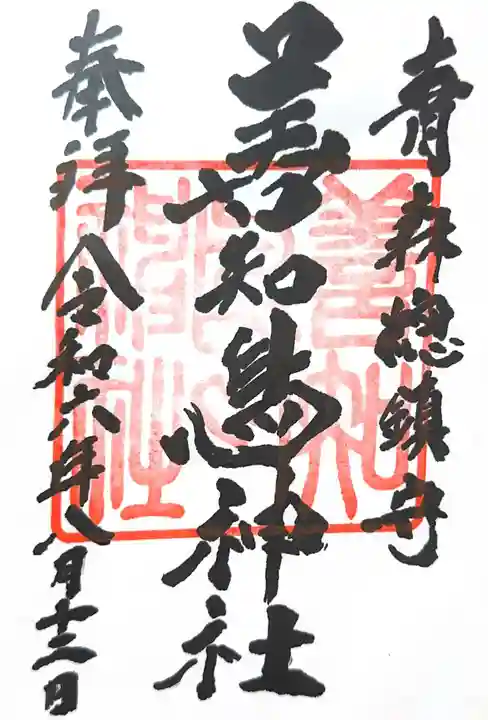 青森總鎮守
善知鳥神社
奉拝 令和六年八月十二日
善知鳥神社